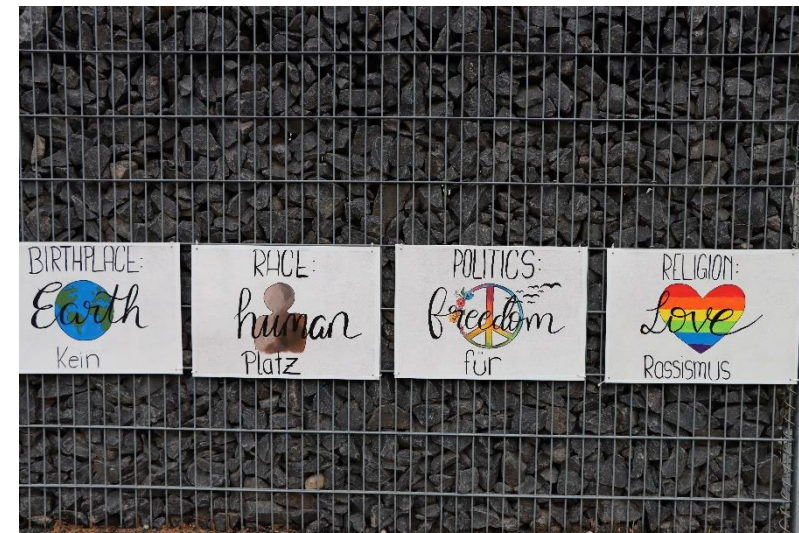 BIRTHPLACE:
Earth
Kein
RACE:
human
Platz
POLITICS:
freedom
für
RELIGION:
Love
Rassismus